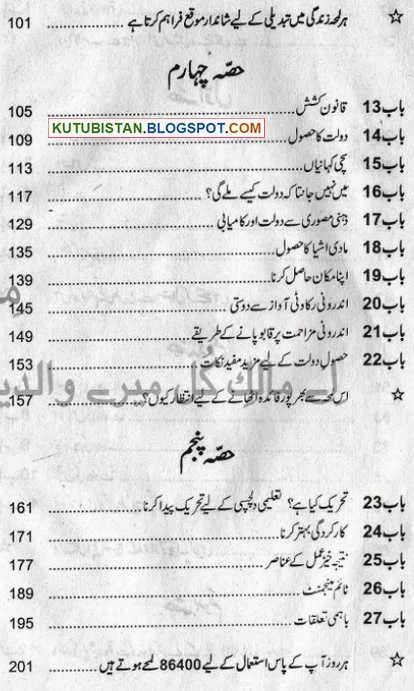 ☆ ہر لمحہ زندگی میں تبدیلی کے لیے شاندار موقع فراہم کرتا ہے 101
حصّہ چہارم
باب 13 قانون کشش 105
KUTUBISTAN.BLOGSPOT.COM
باب 14 دولت کا حصول 109
باب 15 سچی کہانیاں 113
باب 16 میں نہیں جانتا کہ دولت کیسے ملے گی؟ 117
باب 17 ذہنی مصوری سے دولت اور کامیابی 129
باب 18 مادی اشیا کا حصول 135
باب 19 اپنا مکان حاصل کرنا 139
باب 20 اندرونی رکاوٹی آواز سے دوستی 145
باب 21 اندرونی مزاحمت پر قابو پانے کے طریقے 149
باب 22 حصول دولت کے لیے مزید مفید نکات 153
اے مالک کل میرے والدین
☆ اس لمحہ سے بھرپور فائدہ اٹھانے کے لیے انتظار کیوں؟ 157
حصّہ پنجم
باب 23 تحریک کیا ہے؟ تعلیمی دلچسپی کے لیے تحریک پیدا کرنا 161
باب 24 کارکردگی بہتر کرنا 171
باب 25 نتیجہ خیز عمل کے عناصر 177
باب 26 ٹائم مینجمنٹ 189
باب 27 باہمی تعلقات 195
☆ ہر روز آپ کے پاس استعمال کے لیے 86400 لمحے ہوتے ہیں 201